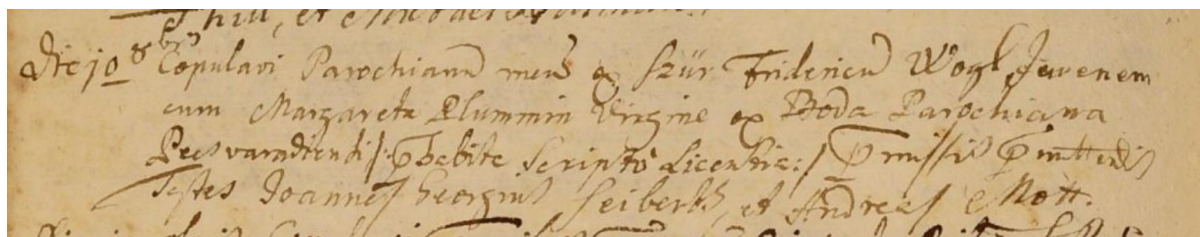 Die 10 8bris Copulavi Parochianū meū ex Szür Fridericū Wogl Juvenem
cum Margareta Plummin Virgine ex Boda Parochiana
Pecsvaradiensi /: p̄habita Scripto Licentia: / P̄missis p̄mittendis
Testes Joannes Georgius Seiberth, et Andreas Mott.